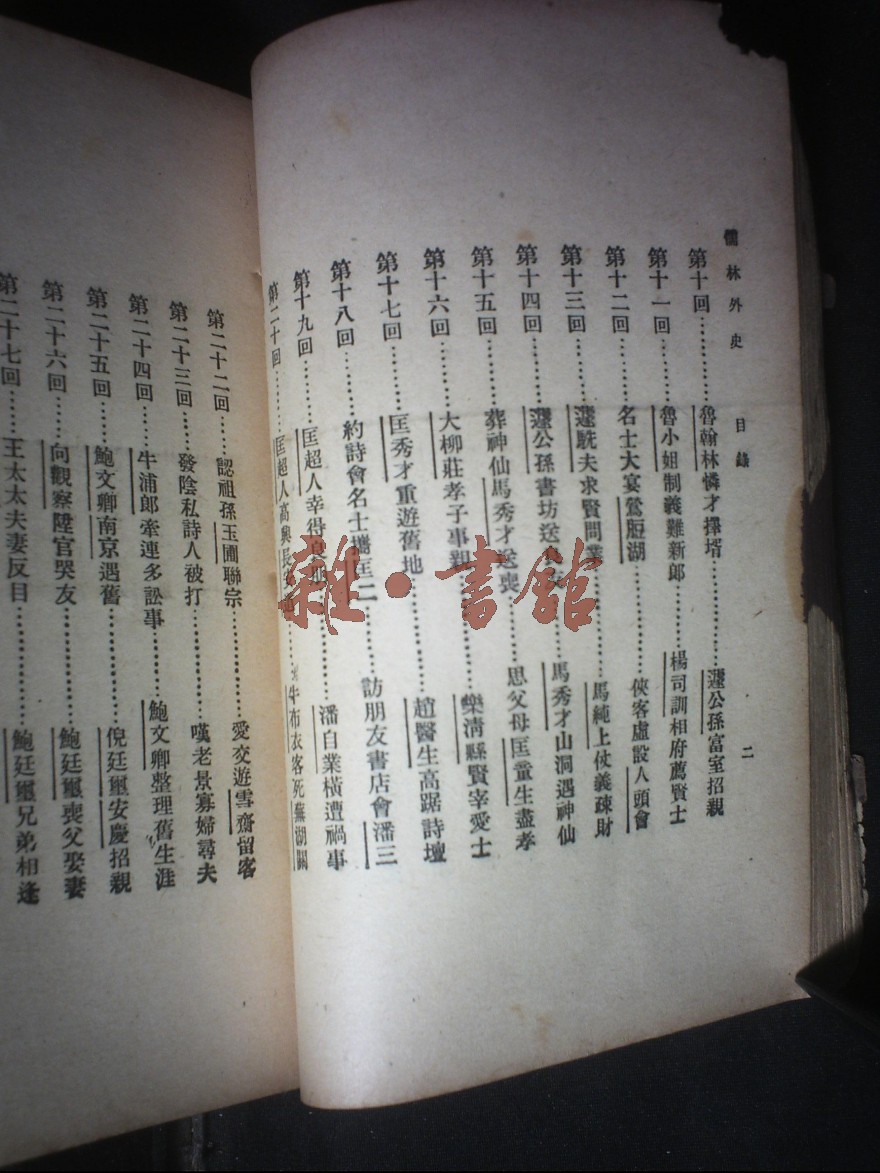 儒林外史 目錄 二
第十回………魯翰林憐才擇壻………蘧公孫富室招親
第十一回……魯小姐制義難新郎……楊司訓相府薦賢士
第十二回……名士大宴鶯脰湖………俠客虛設人頭會
第十三回……蘧駪夫求賢問業………馬純上仗義疎財
第十四回……蘧公孫書坊送良友……馬秀才山洞遇神仙
第十五回……葬神仙馬秀才送喪……思父母匡童生盡孝
第十六回……大柳莊孝子事親………樂清縣賢宰愛士
第十七回……匡秀才重遊舊地………趙醫生高踞詩壇
第十八回……約詩會名士攜匡二……訪朋友書店會潘三
第十九回……匡超人幸得良朋………潘自業橫遭禍事
第二十回……匡超人高興長安道……牛布衣客死蕪湖關
第二十二回……認祖孫玉圃聯宗………愛交遊雪齋留客
第二十三回……發陰私詩人被打………嘆老景寡婦尋夫
第二十四回……牛浦郎牽連多訟事……鮑文卿整理舊生涯
第二十五回……鮑文卿南京遇舊………倪廷璽安慶招親
第二十六回……向觀察陞官哭友………鮑廷璽喪父娶妻
第二十七回……王太太夫妻反目………鮑廷璽兄弟相逢
雜·書館